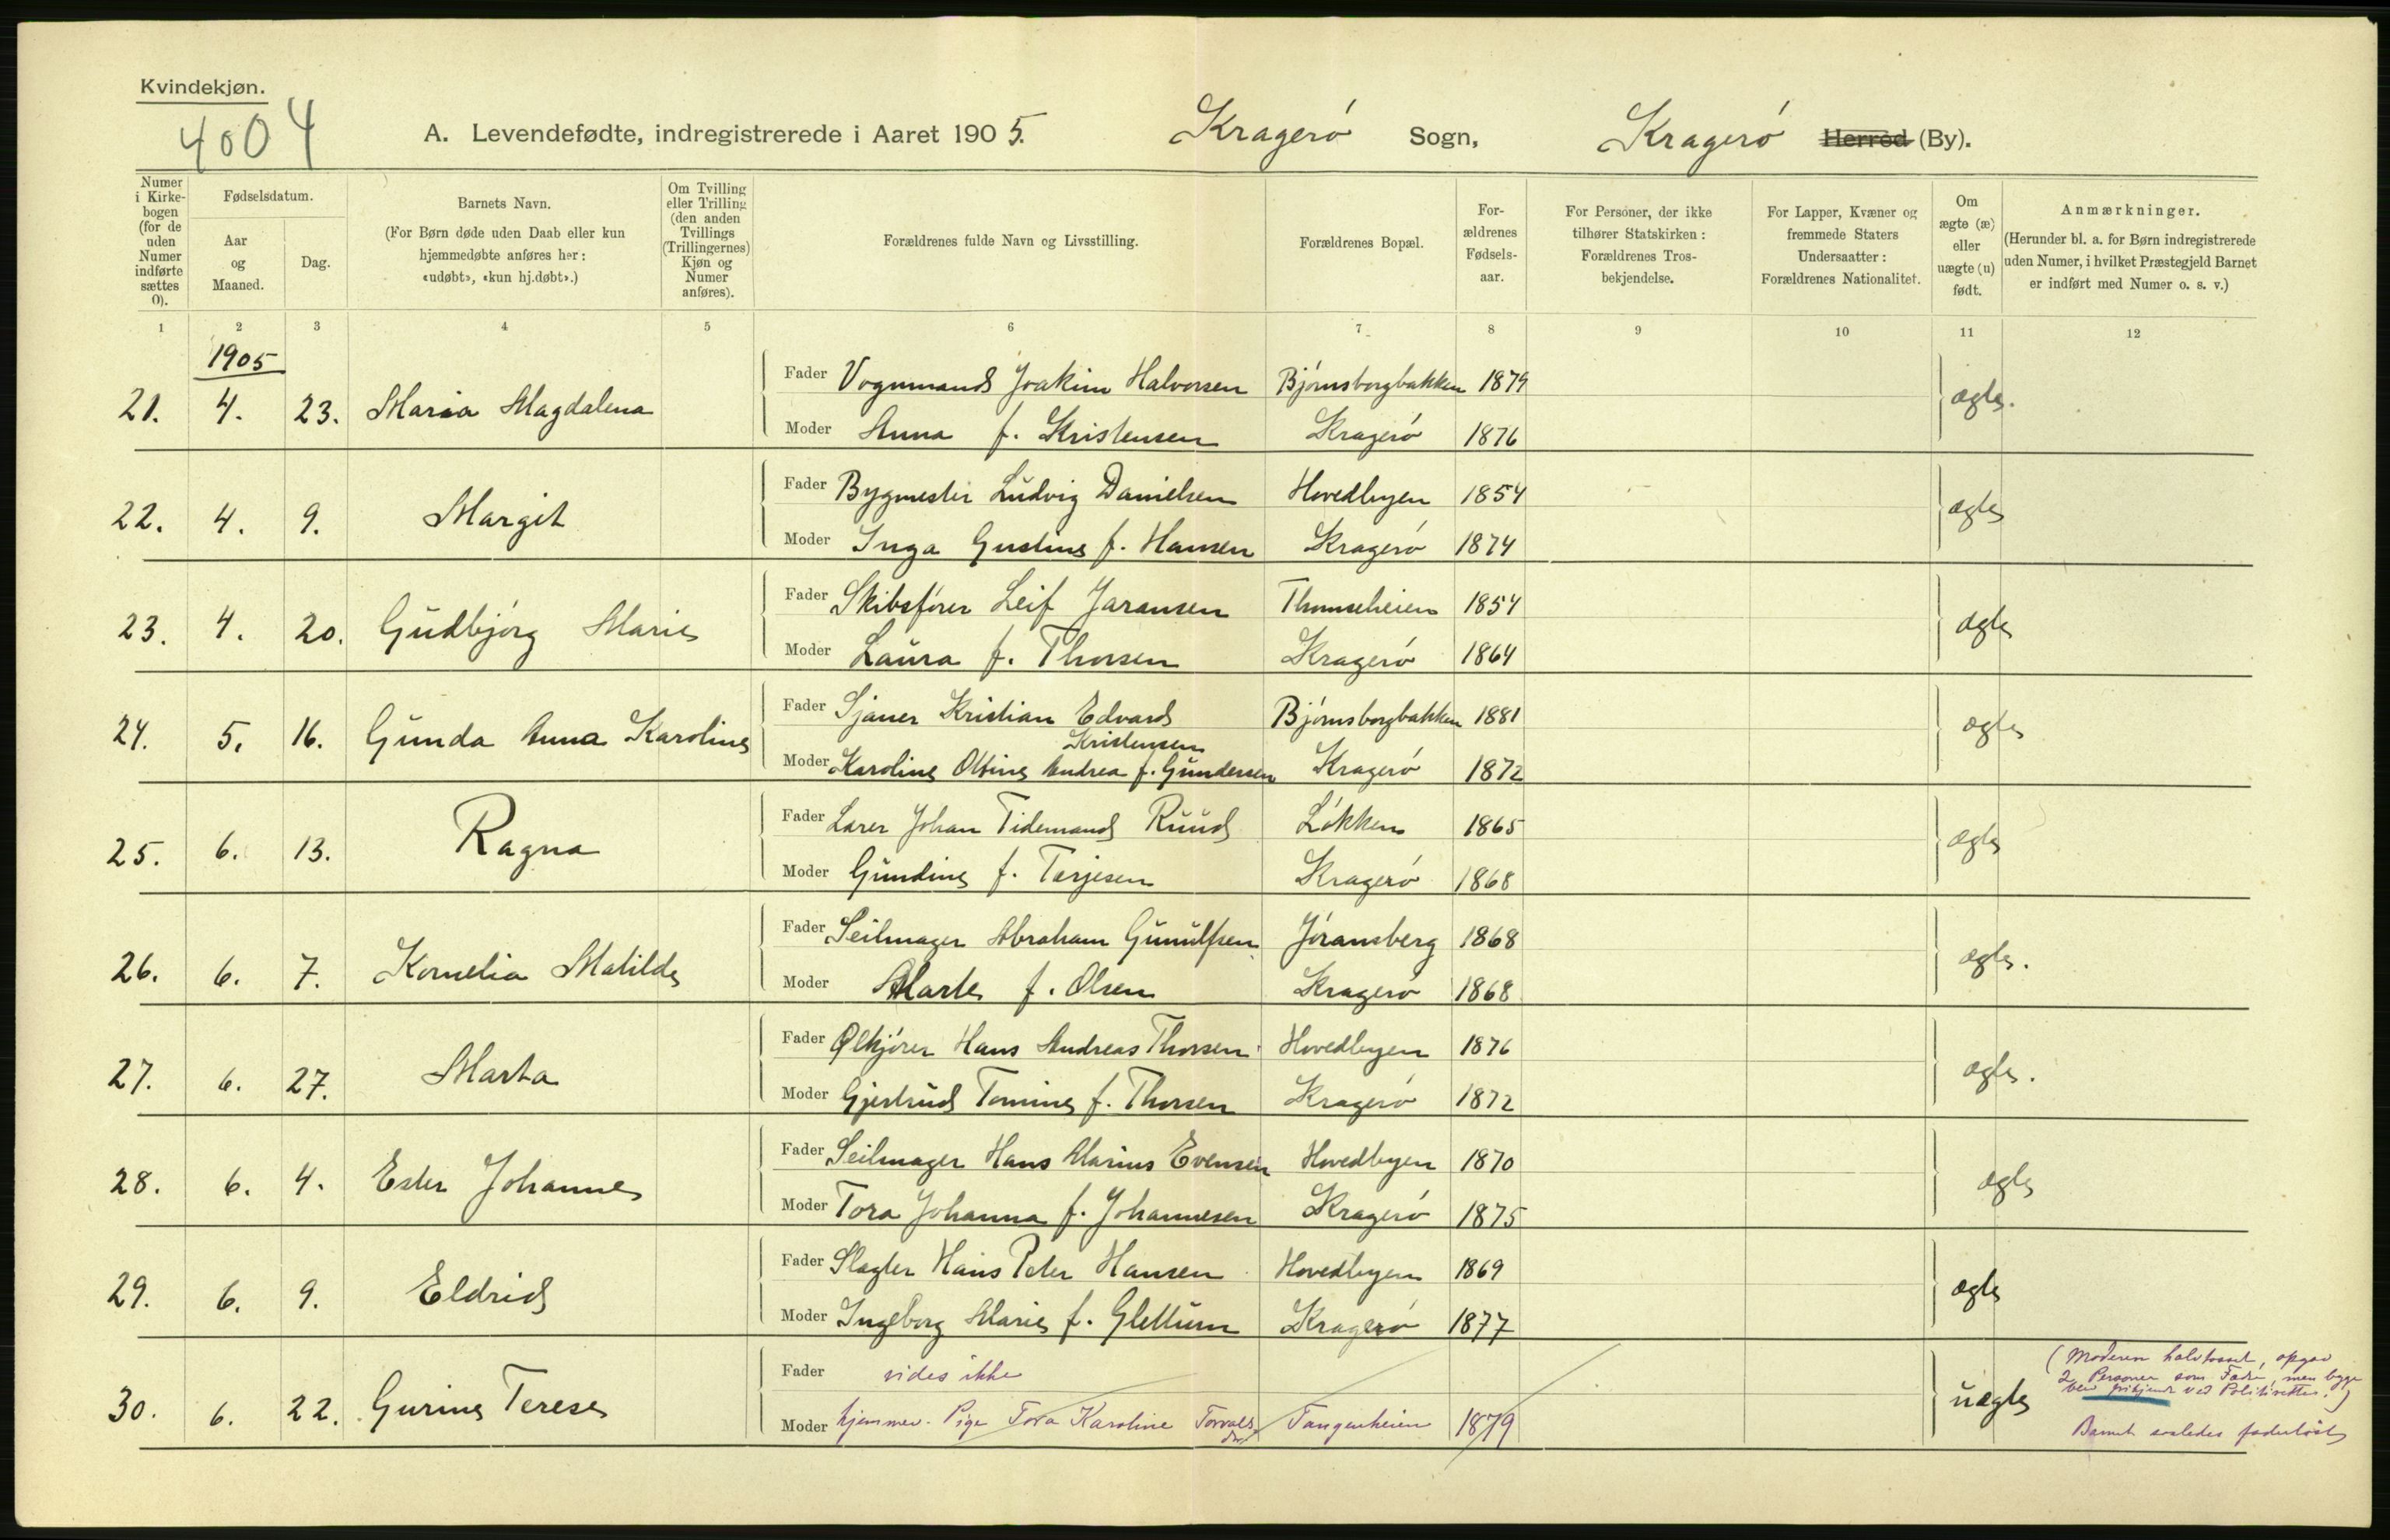 Kvindekjøn.
4004
A. Levendefødte, indregistrerede i Aaret 1905. Kragerø Sogn, Kragerø Herred (By).
Numer i Kirkebogen (for de uden Numer indførte sættes 0).
Fødselsdatum.
Aar og Maaned.
Dag.
Barnets Navn.
(For Børn døde uden Daab eller kun hjemmedøbte anføres her: «udøbt», «kun hj.døbt».)
Om Tvilling eller Trilling (den anden Tvillings (Trillingernes) Kjøn og Numer anføres).
Forældrenes fulde Navn og Livsstilling.
Forældrenes Bopæl.
Forældrenes Fødselsaar.
For Personer, der ikke tilhører Statskirken: Forældrenes Trosbekjendelse.
For Lapper, Kvæner og fremmede Staters Undersaatter: Forældrenes Nationalitet.
Om ægte (æ) eller uægte (u) født.
Anmærkninger.
(Herunder bl. a. for Børn indregistrerede uden Numer, i hvilket Præstegjeld Barnet er indført med Numer o. s. v.)
1 2 3 4 5 6 7 8 9 10 11 12
1905
Fader Vognmand Joakim Halvorsen Bjørnsborgbakken 1879
21. 4. 23. Maria Magdalena ægte.
Moder Anna f. Kristensen Kragerø 1876
Fader Bygmester Ludvig Danielsen Hovedbyen 1854
22. 4. 9. Margit ægte
Moder Inga Gustine f. Hansen Kragerø 1874
Fader Skibsfører Leif Jaransen Thomseheien 1854
23. 4. 20. Gudbjørg Marie ægte
Moder Laura f. Thorsen Kragerø 1864
Fader Sjauer Kristian Edvard Bjørnsborgbakken 1881
Kristensen
24. 5. 16. Gunda Anna Karoline ægte
Moder Karoline Olsine Andrea f. Gundersen Kragerø 1872
Fader Lærer Johan Tidemand Ruud Løkken 1865
25. 6. 13. Ragna ægte
Moder Gundine f. Tarjesen Kragerø 1868
Fader Seilmager Abraham Gunulfsen Jøransberg 1868
26. 6. 7. Kornelia Matilde ægte.
Moder Marte f. Olsen Kragerø 1868
Fader Ølkjører Hans Andreas Thorsen Hovedbyen 1876
27. 6. 27. Marta ægte.
Moder Gjertrud Tomine f. Thorsen Kragerø 1872
Fader Seilmager Hans Marius Evensen Hovedbyen 1870
28. 6. 4. Ester Johanne ægte
Moder Tora Johanna f. Johannesen Kragerø 1875
Fader Slagter Hans Peter Hansen Hovedbyen 1869
29. 6. 9. Eldrid ægte
Moder Ingeborg Marie f. Glettum Kragerø 1877
Fader vides ikke
30. 6. 22. Gurine Terese uægte
Moder hjemmev. Pige Tora Karoline Torvalds- Tangenheien 1879
dtr
(Moderen halvtosset, opgav
2 Personer som Fader, men begge
blev frikjendt ved Politiretten.)
Barnet saaledes faderløst